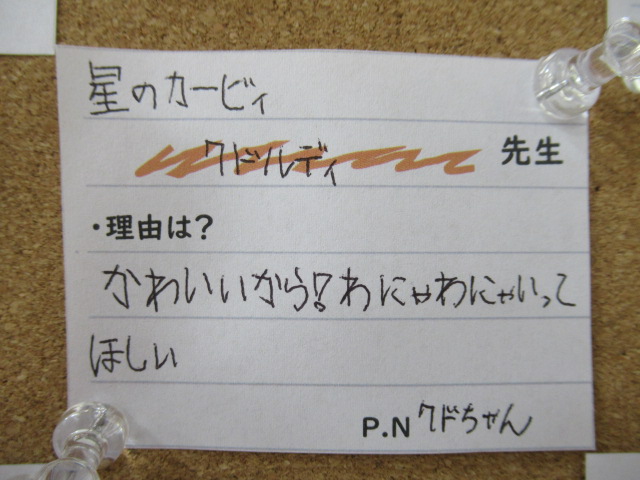 星のカービィ
ワドルディ 先生
・理由は?
かわいいから!わにゃわにゃいって
ほしい
P.N ワドちゃん